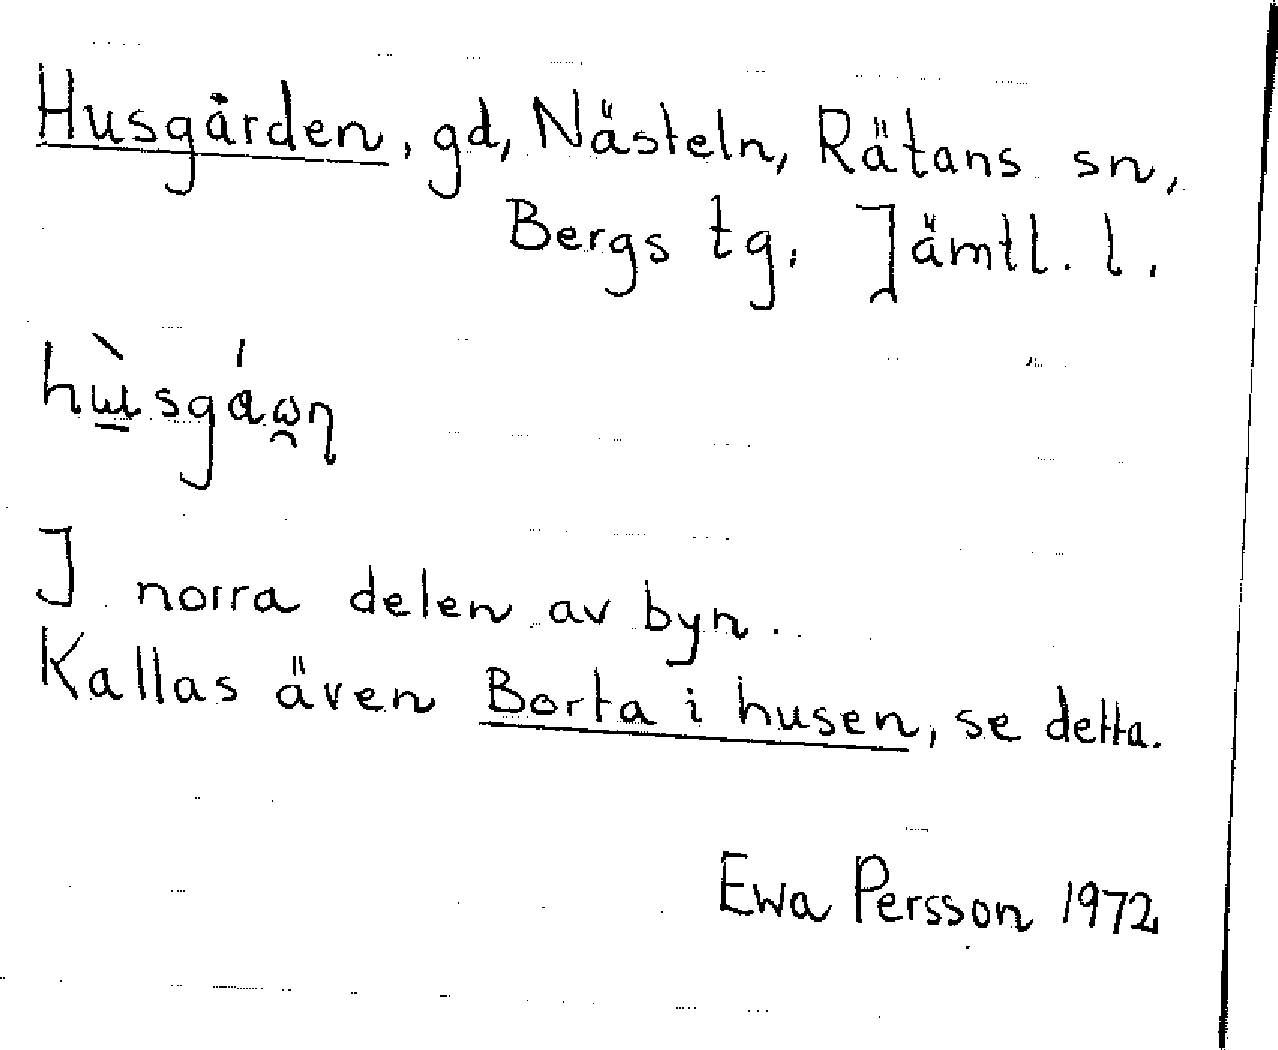 Husgården, gd, Nästeln, Rätans sn,
Bergs tg. Jämtl. l.
I norra delen av byn.
Kallas även Borta i husen, se detta.
Ewa Persson 1972